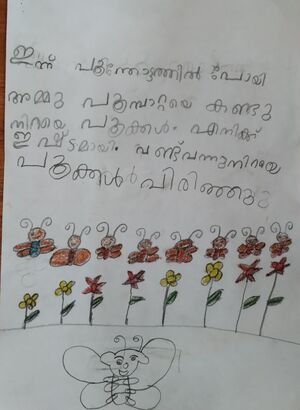 ഇന്ന് പൂന്തോട്ടത്തിൽ പോയി
അമ്മു പൂമ്പാറ്റയെ കണ്ടു
നിറയെ പൂക്കൾ. എനിക്ക്
ഇഷ്ടമായി. വണ്ട് വന്നു നിറയെ
പൂക്കൾ വിരിഞ്ഞു